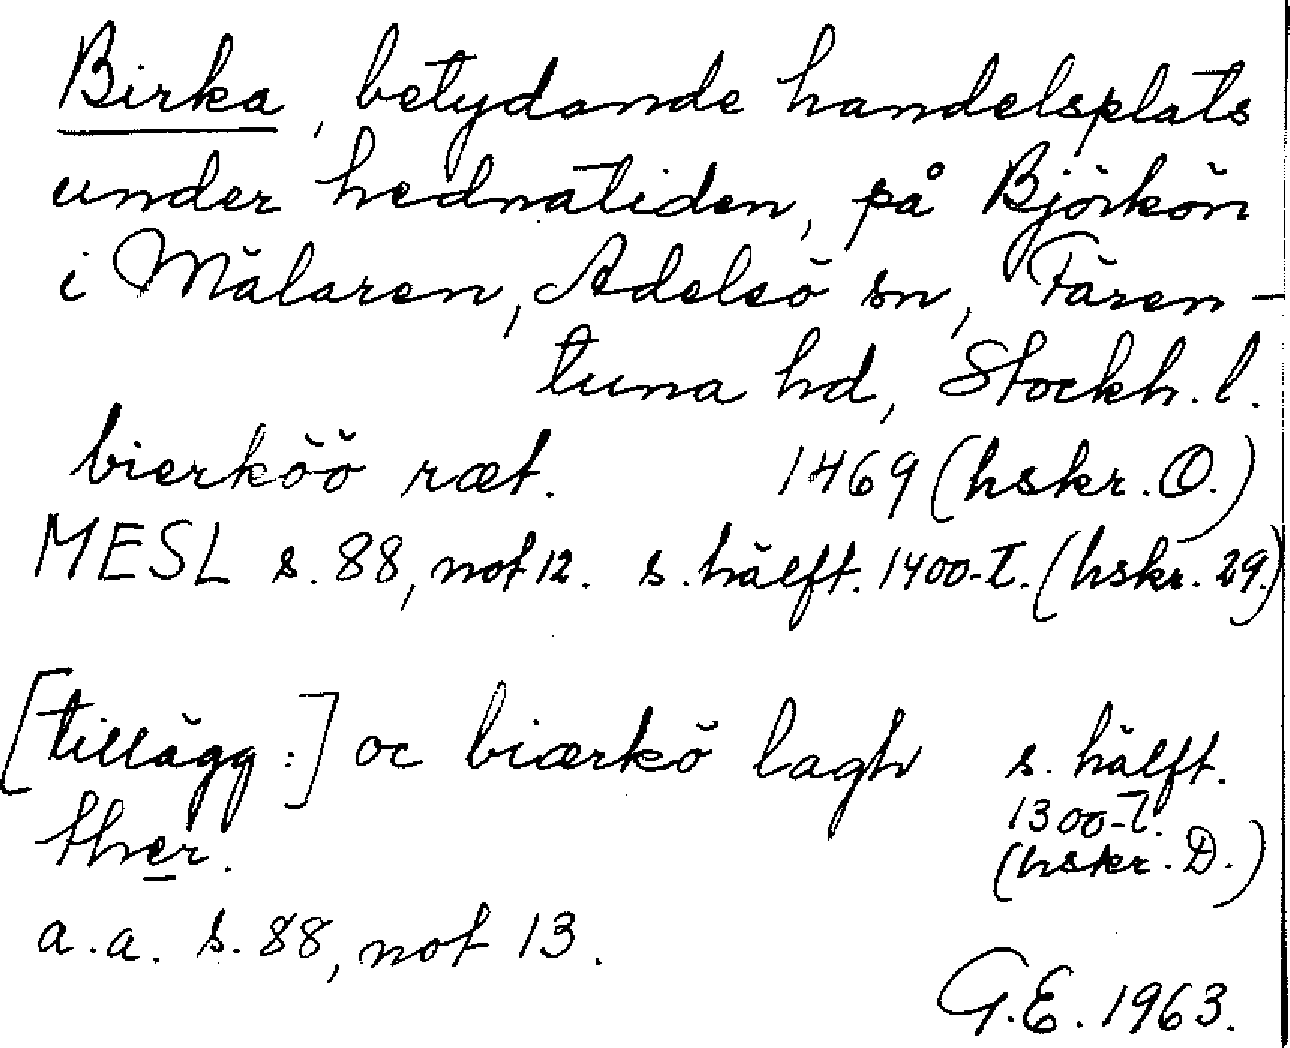 Birka, betydande handelsplats
under hednatiden, på Björkön
i Mälaren, Adelsö sn, Fären-
tuna hd, Stockh. l.
bierköö ræt. 1469 (hskr. O.)
MESL s. 88, not 12. s. hälft. 1400-t. (hskr. 29.)
[tillägg:] oc biærkö lagh s. hälft.
ther. 1300-t.
(hskr. D.)
a.a. s. 88, not 13.
G.E. 1963.